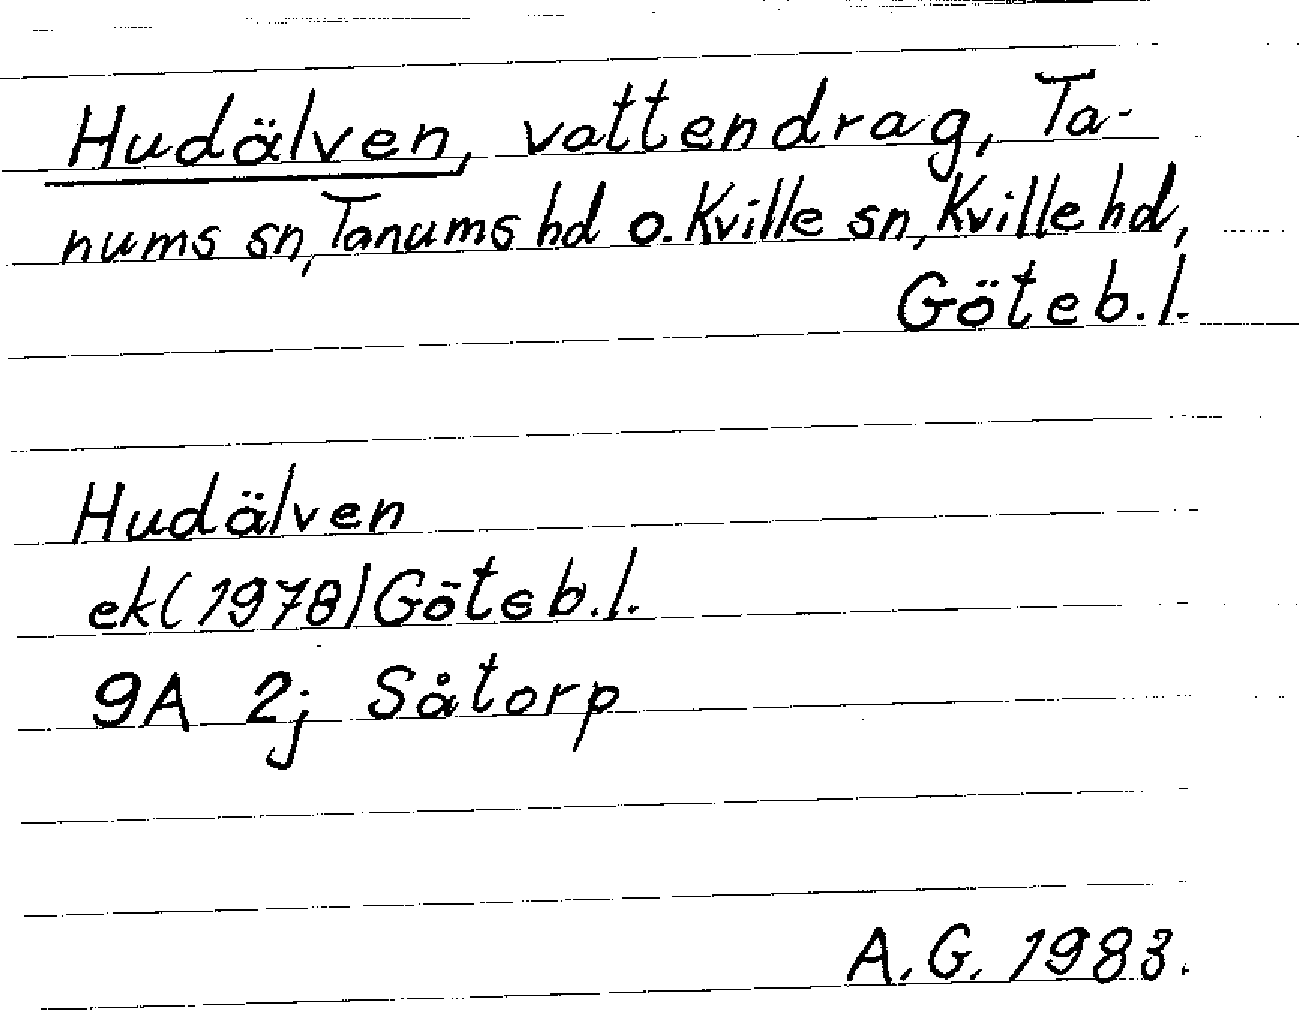 Hudälven, vattendrag, Ta-
nums sn, Tanums hd o. Kville sn, Kville hd,
Göteb. l.
Hudälven
ek (1978) Göteb. l.
9A 2j Såtorp
A. G. 1983.